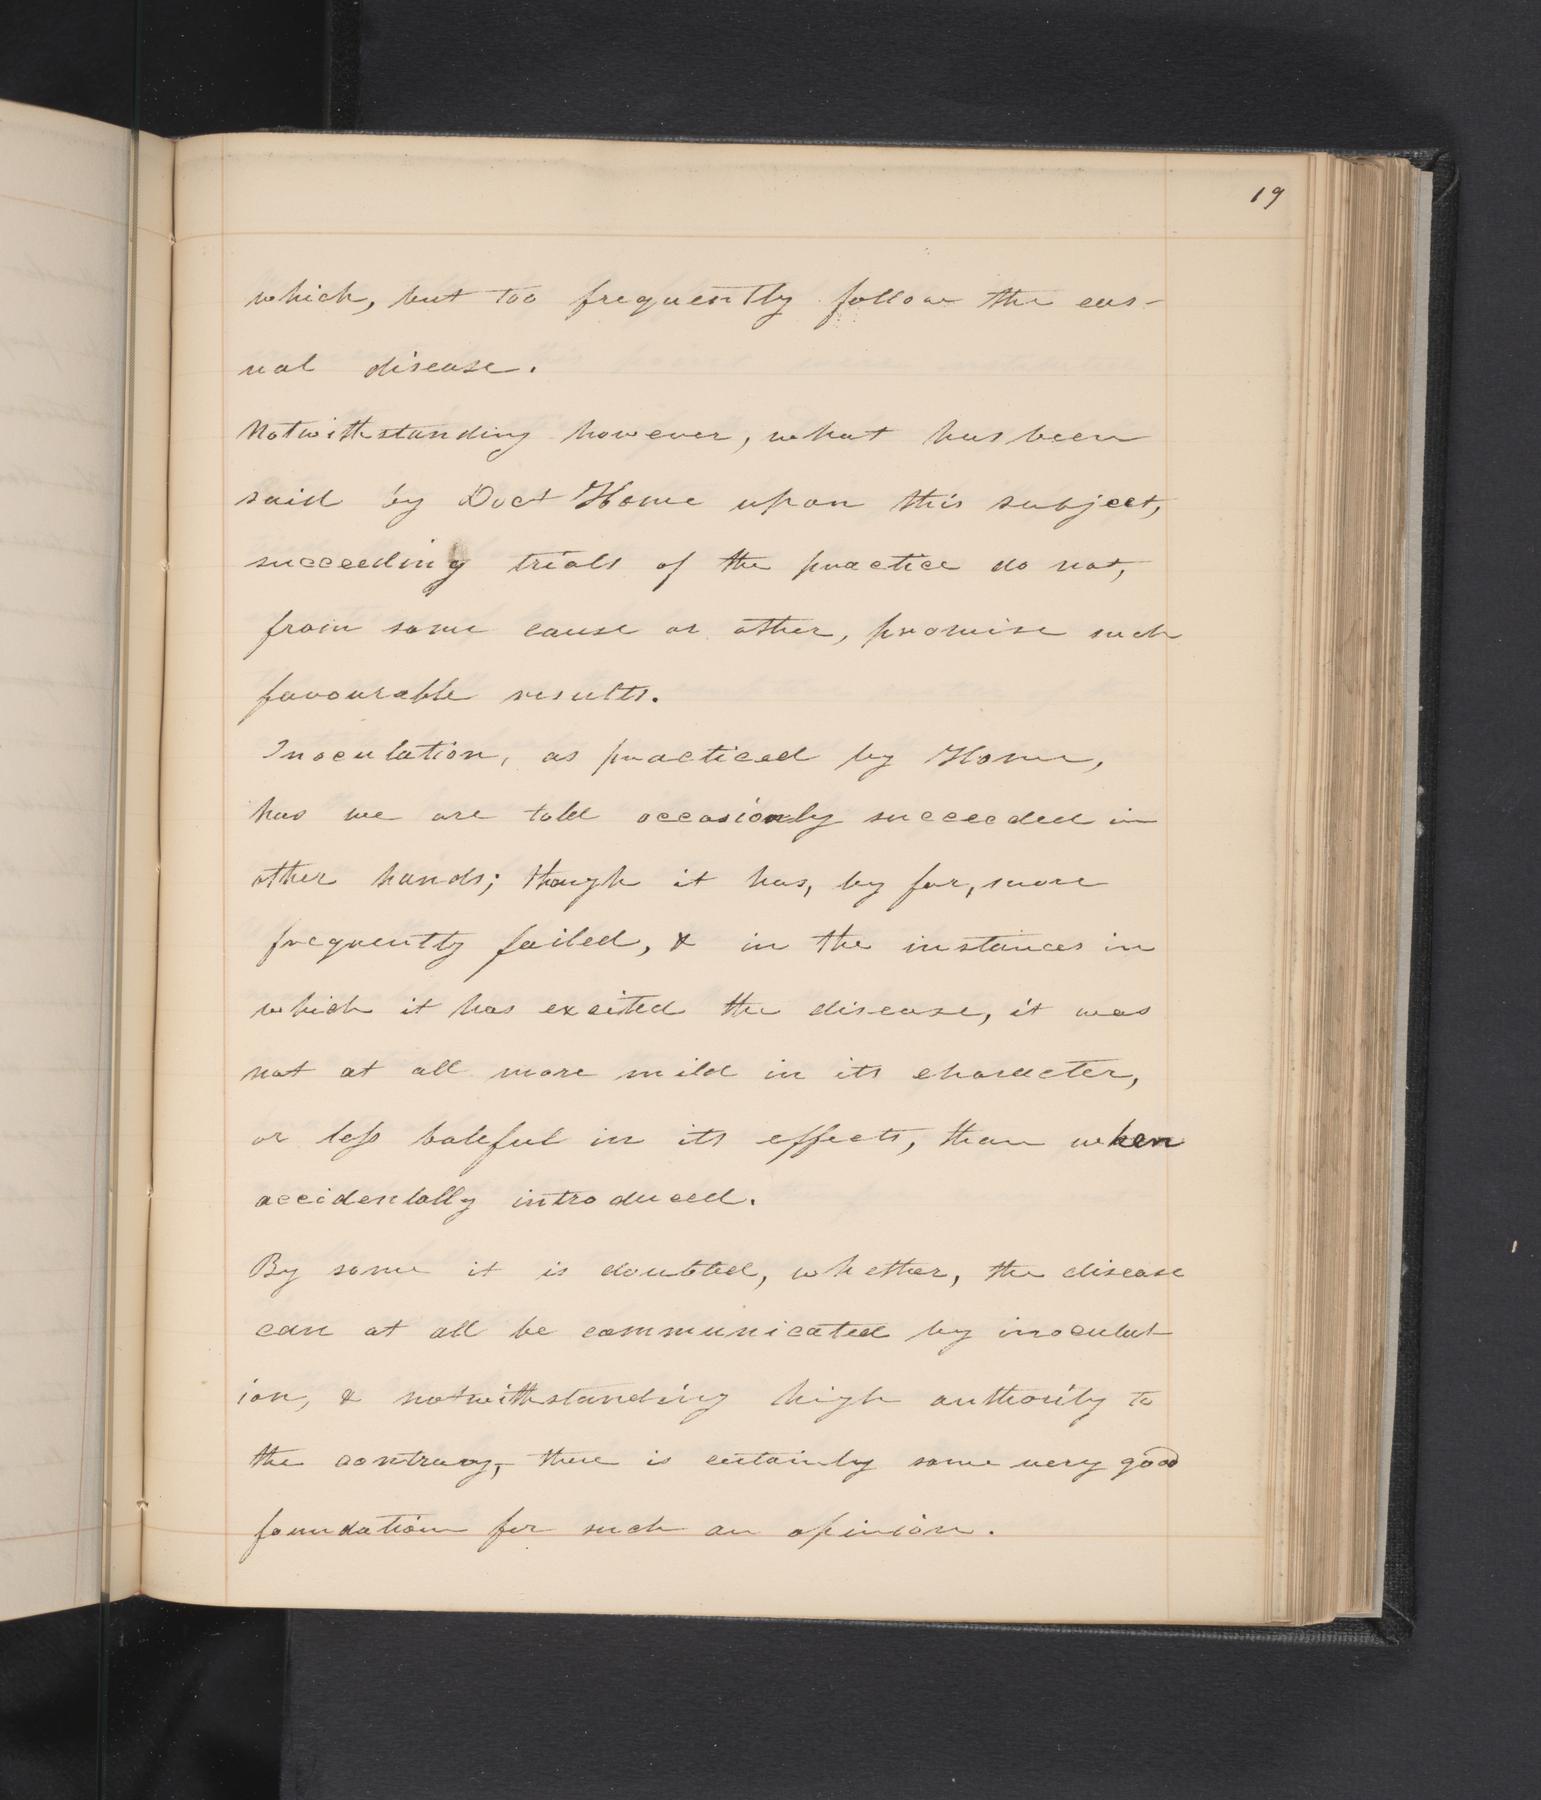 19
which, but too frequently follow the cas-
ual disease.
Notwithstanding however, what has been
said by Doct Home upon this subject,
succeeding trials of the practice do not,
from some cause or other, promise such
favourable results.
Inoculation, as practiced by Home,
has we are told occasionly succeeded in
other hands; though it has, by far, more
frequently failed, & in the instances in
which it has excited the disease, it was
not at all more mild in its character,
or less baleful in its effects, than when
accidentally introduced.
By some it is doubted, whether, the disease
can at all be communicated by inoculat-
ion, & notwithstanding high authority to
the contrary, there is certainly some very good
foundation for such an opinion.